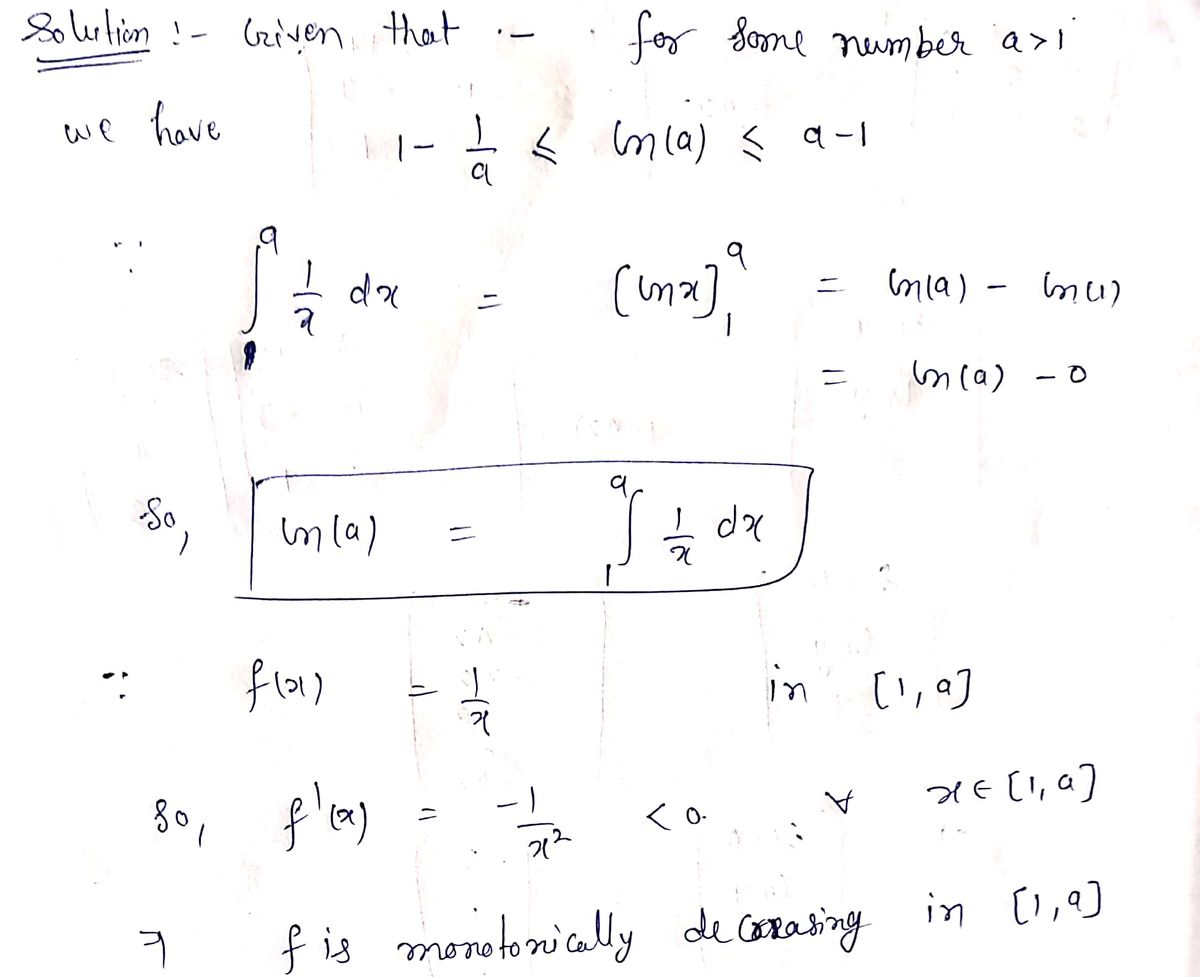 Solution :- Given that :- for some number a>1
we have 1 - 1/a ≤ ln(a) ≤ a-1
∵ ∫₁^a 1/x dx = [lnx]₁^a = ln(a) - ln(1)
= ln(a) - 0
So, ln(a) = ∫₁^a 1/x dx
∵ f(x) = 1/x in [1,a]
So, f'(x) = -1/x² < 0. ∀ x ∈ [1,a]
⇒ f is monotonically decreasing in [1,a]